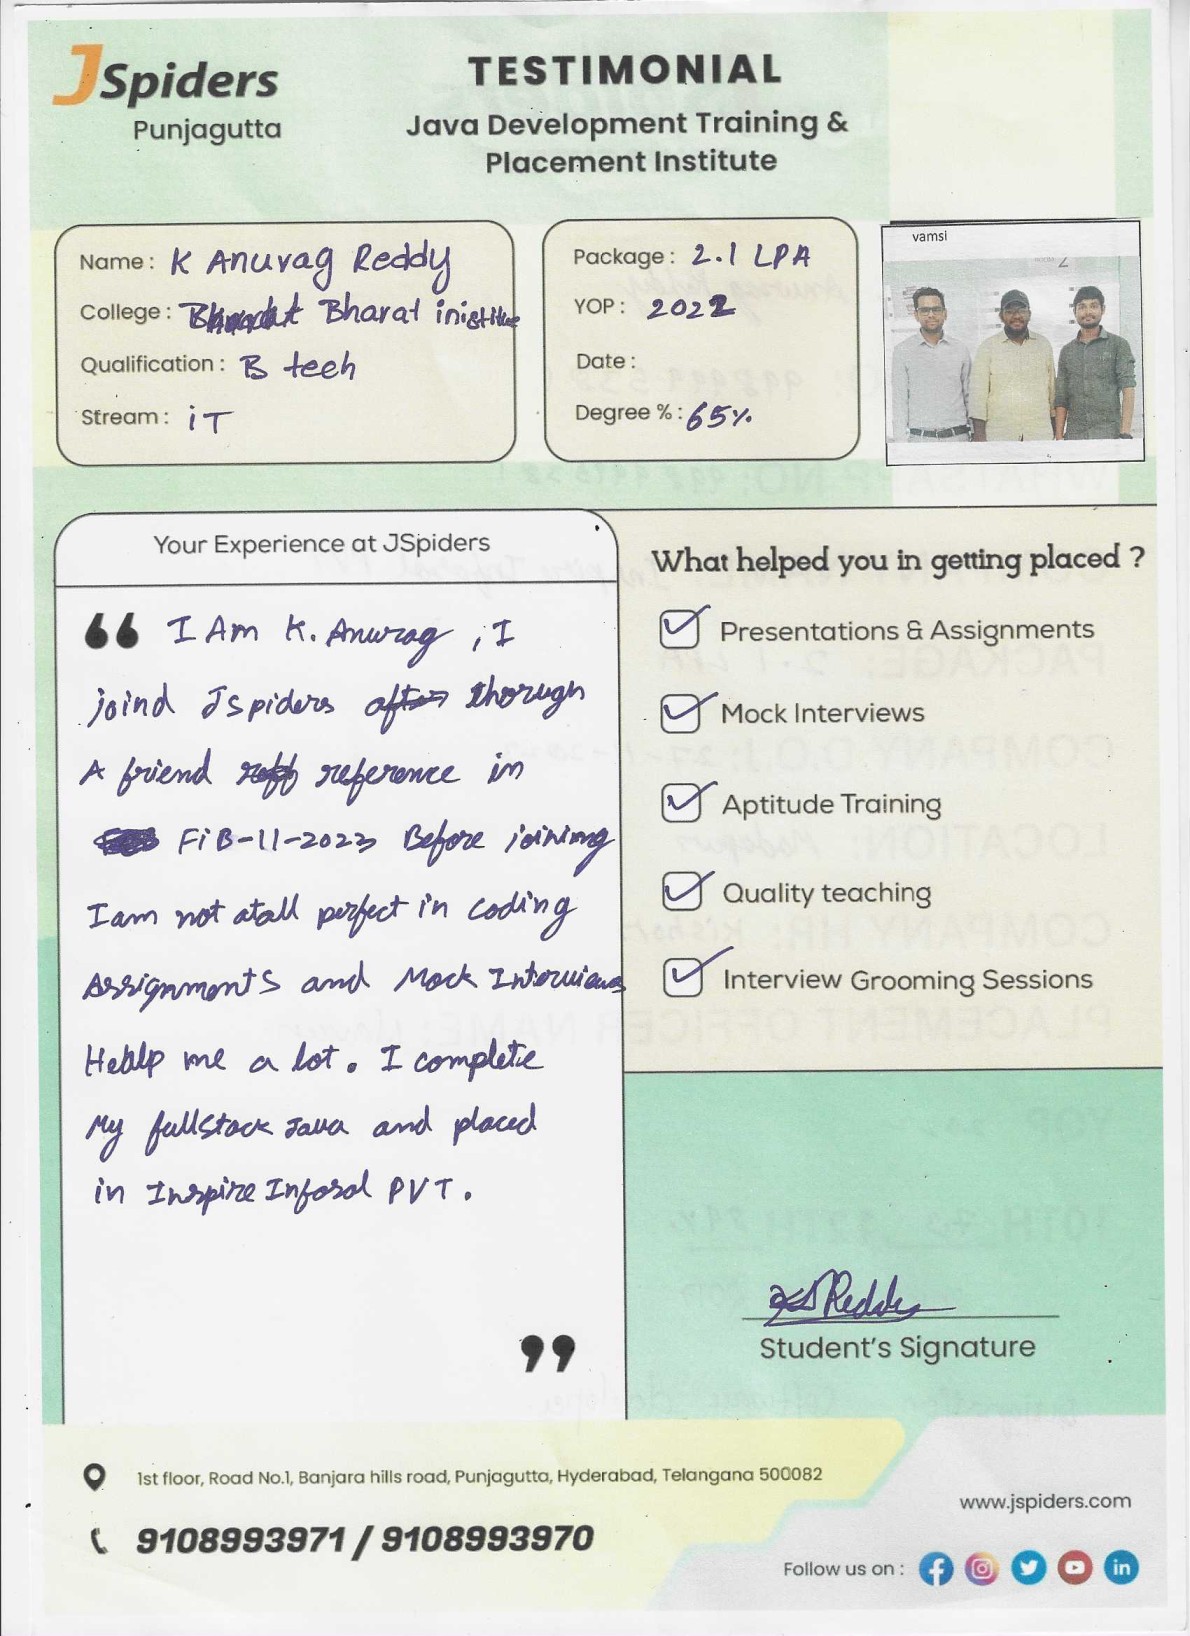 JSpiders
Punjagutta
TESTIMONIAL
Java Development Training &
Placement Institute
Name: K Anurag Reddy
College: Bharat inistitue
Qualification: B tech
Stream: iT
Package: 2.1 LPA
YOP: 2022
Date:
Degree %: 65%
vamsi
Your Experience at JSpiders
I Am K. Anurag, I
joind Jspiders after thorugh
A friend reference in
FiB-11-2023 Before joining
I am not atall perfect in coding
Assignments and Mock Interviews
Healp me a lot. I complete
My fullstack Java and placed
in Inspire Infosol PVT.
What helped you in getting placed ?
Presentations & Assignments
Mock Interviews
Aptitude Training
Quality teaching
Interview Grooming Sessions
Reddy
Student's Signature
1st floor, Road No.1, Banjara hills road, Punjagutta, Hyderabad, Telangana 500082
9108993971 / 9108993970
www.jspiders.com
Follow us on :